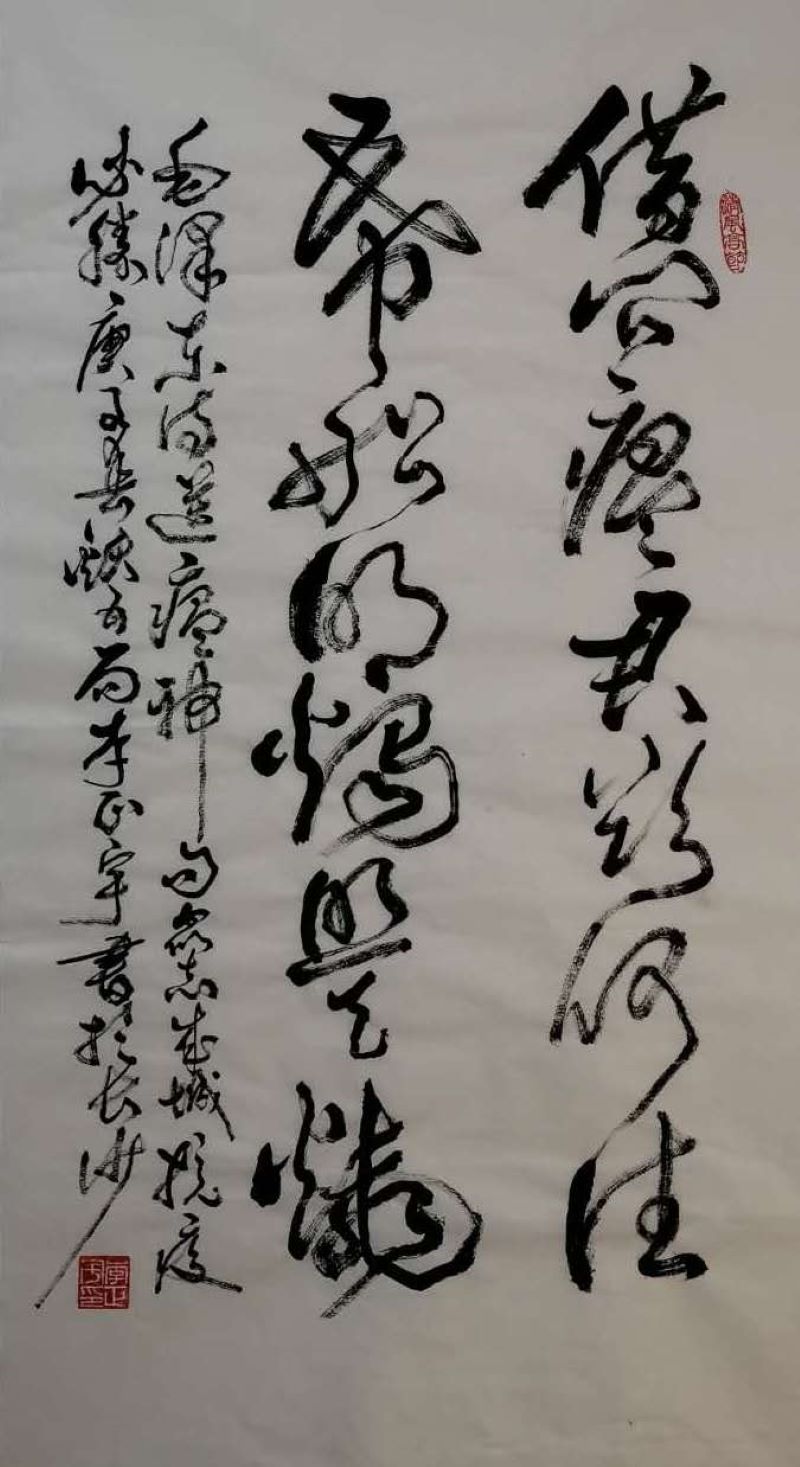 借问瘟君欲何往
帋船明燭照天燒
毛泽东诗送瘟神句众志成城抗疫
必勝庚子春李正宇書於长沙